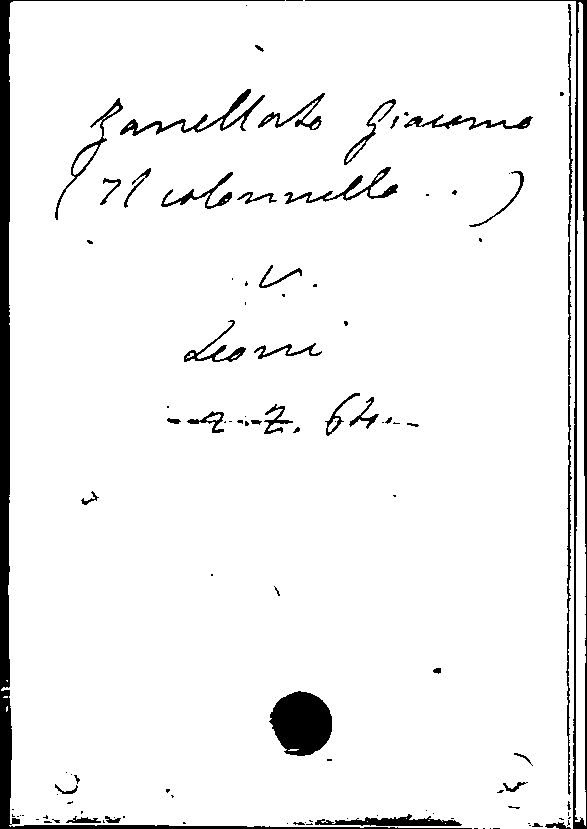 Zanellato Giacomo
(Il colonnello . . )
v.
Leoni
Z. Z. 64.